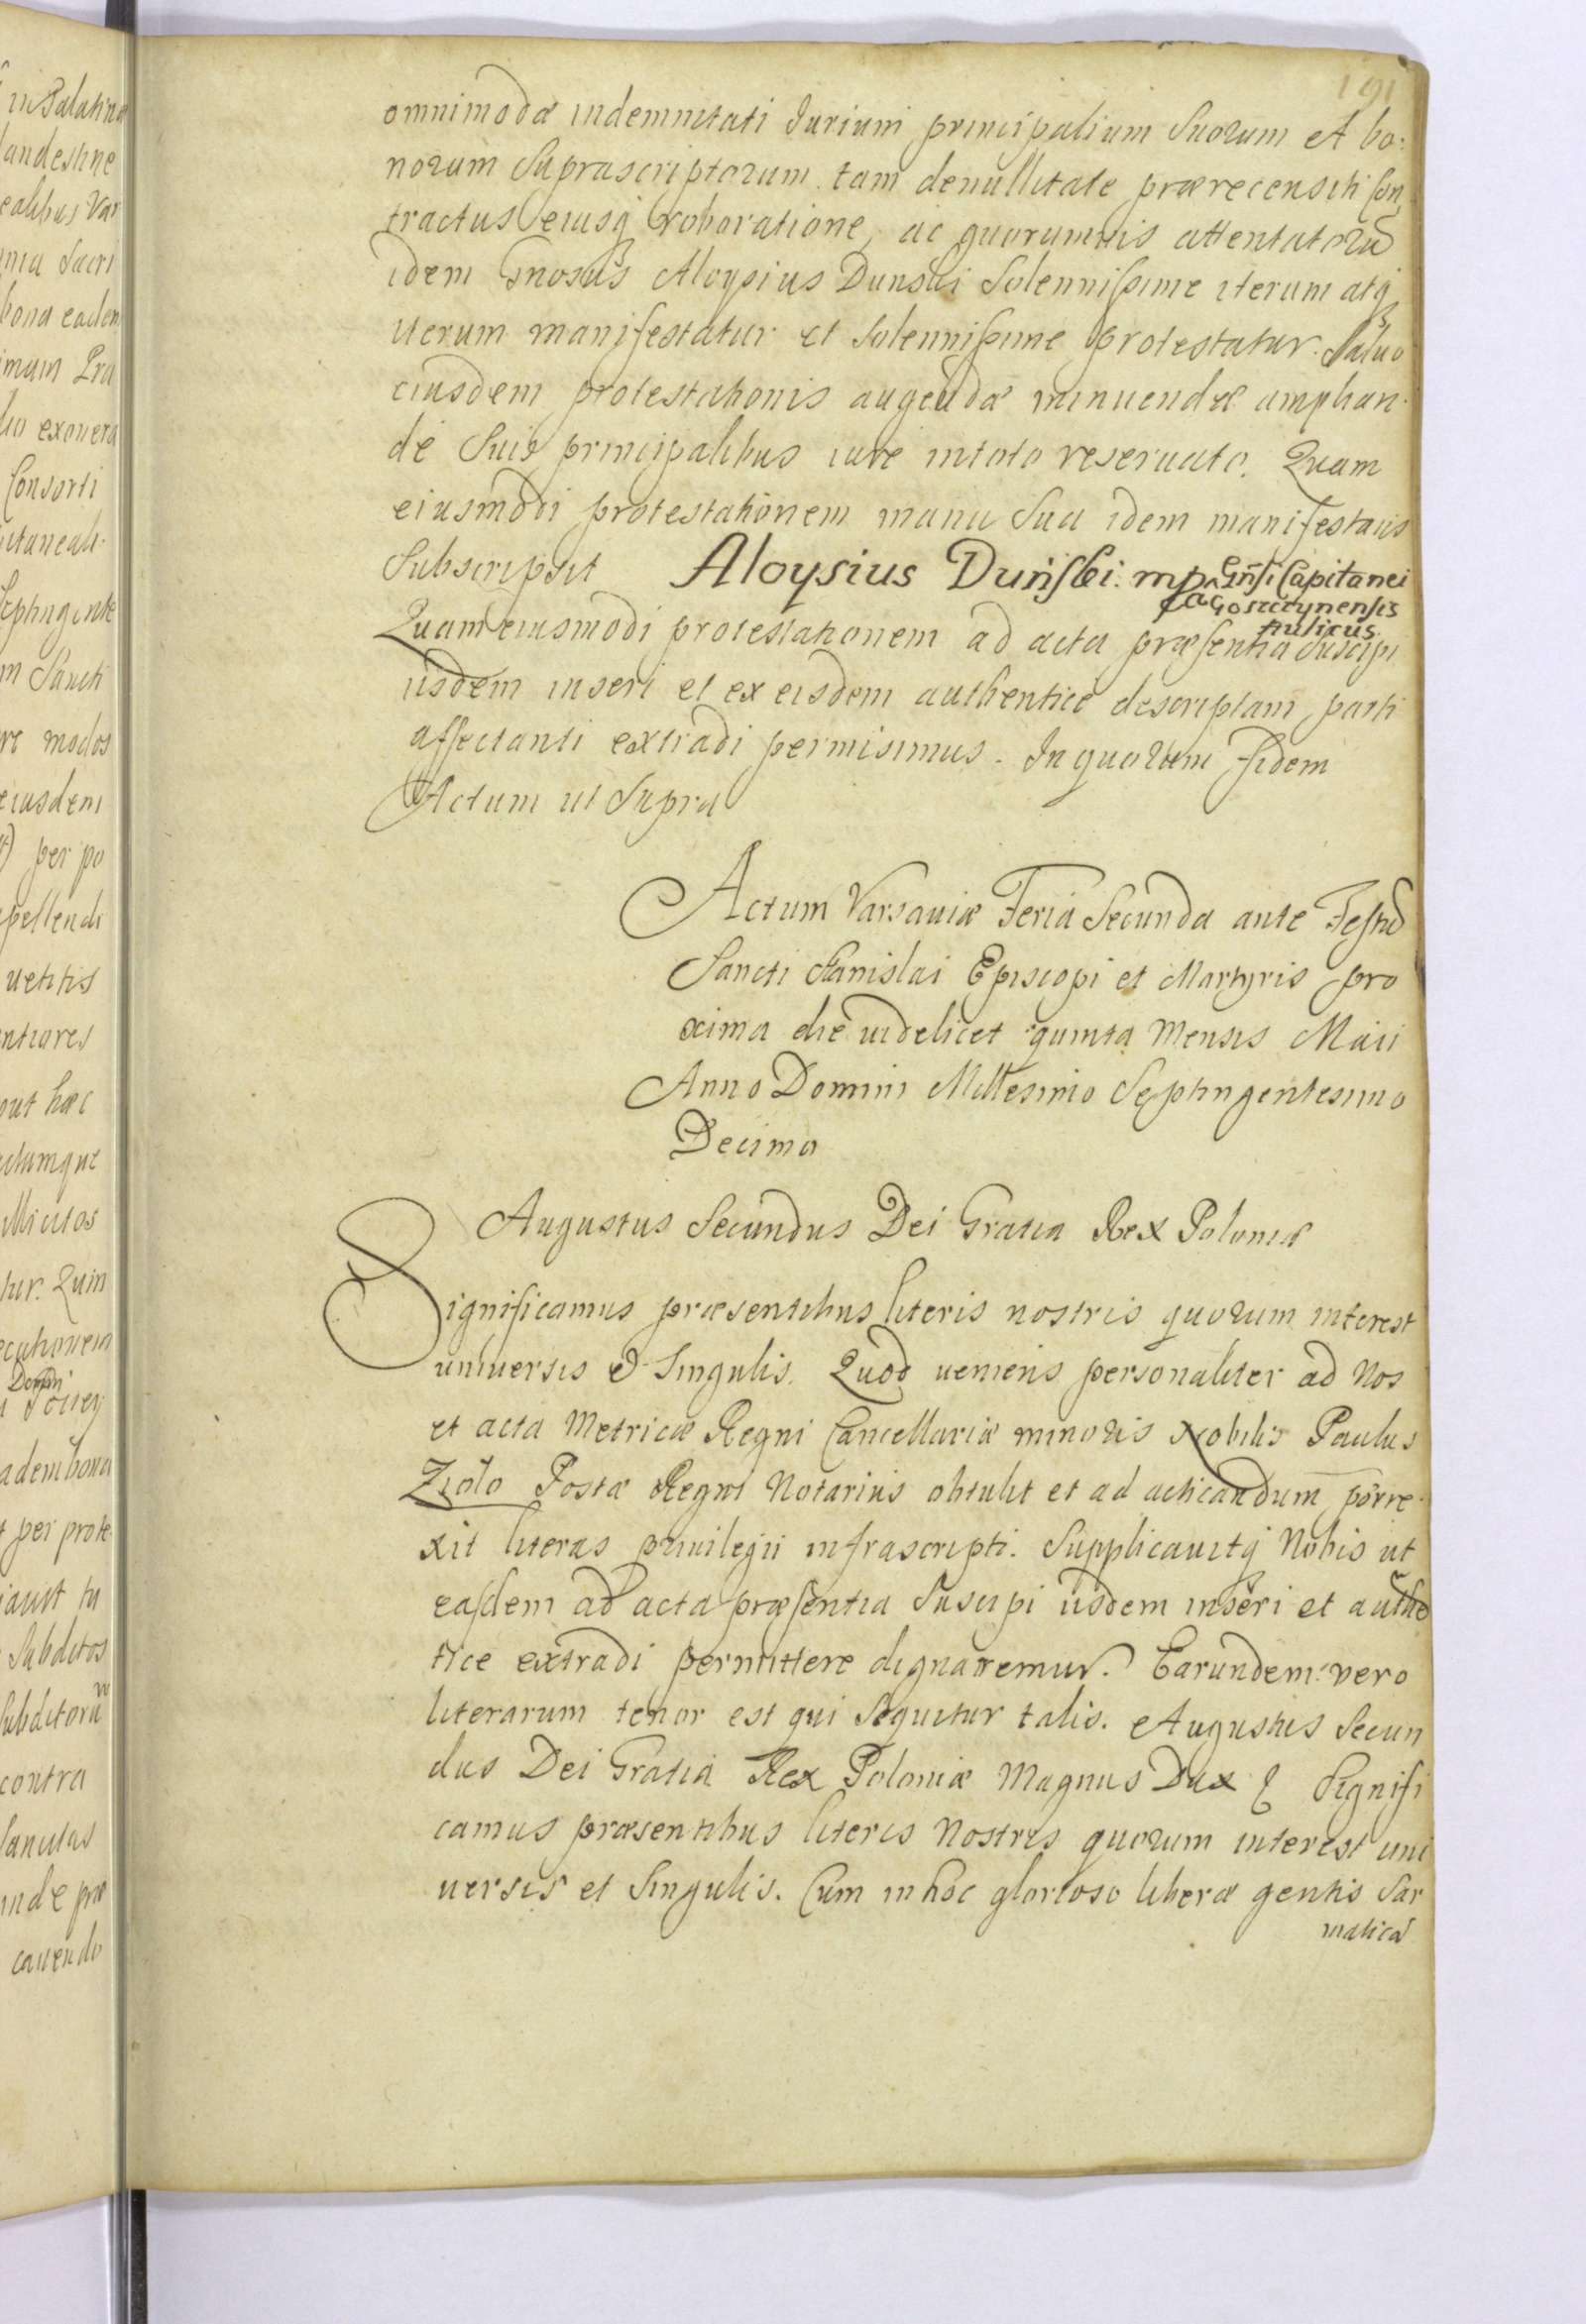 191
omnimodæ indemnitati Jurium principalium Suorum et bo:
norum Suprascriptorum tam denullitate prærecensiti Con,
tractus eiusq roboratione, ac quorumuis attentatorũ
idem Gnosus Aloysius Dunski Solennissime iterum atq
iterum manifestatur et Solennissime protestatur. Saluo
eiusdem protestationis augendæ minuendæ amplian.
dé Suis principalibus iure intoto reseruato. Quam
eiusmodi protestationem manu Sua idem manifestans
Subscripsit Aloysius Duński mp Capitanei
Gostÿnensis
Aulicus
Quam eiusmodi protestationem ad acta præsentia Suscipi
iisdem inseri et ex eisdem authentice descriptam parti
affectanti extradi permisimus. In quorum fidem
Actum ut Supra
Actum Varsauiæ Feria Secunda ante Festũ
Sancti Stanislai Episcopi et Martyris pro
xima die uidelicet quinta Mensis Maii
Anno Domini Millesimo Septingentesimo
Decimo
Augustus Secundus Dei Gratia Rex Poloniæ
Significamus præsentibus literis nostris quorum interest
uniuersis & Singulis. Quod ueniens personaliter ad Nos
et acta Metricæ Regni Cancellariæ minoris Nobilis Paulus
Zioło Postæ Regni Notarius obtulit et ad acticandum porre.
xit literas priuilegii infrascripti. Supplicauitq Nobis ut
easdem ad acta præsentia Suscipi iisdem inseri et authẽ
tice extradi permittere dignaremur. Earundem vero
literarum tenor est qui Sequitur talis. Augustus Secun
dus Dei Gratia Rex Poloniæ Magnus Dux & Signifi
camus præsentibus literis Nostris quorum interest uni
uersis et Singulis. Cum in hoc glorioso liberæ gentis Sar
matica